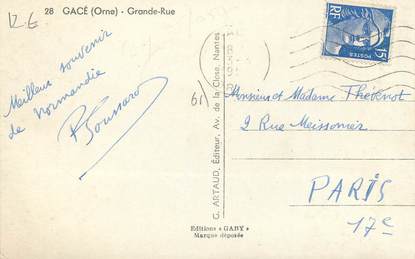 12.E
28 GACÉ (Orne) - Grande-Rue
Meilleur souvenir
de Normandie
61
G. ARTAUD, Éditeur, Av. de la Close, Nantes
RF
POSTES
15F
Monsieur et Madame Thévenot
2 Rue Meissonier
PARIS
17e
Editions « GABY »
Marque déposée